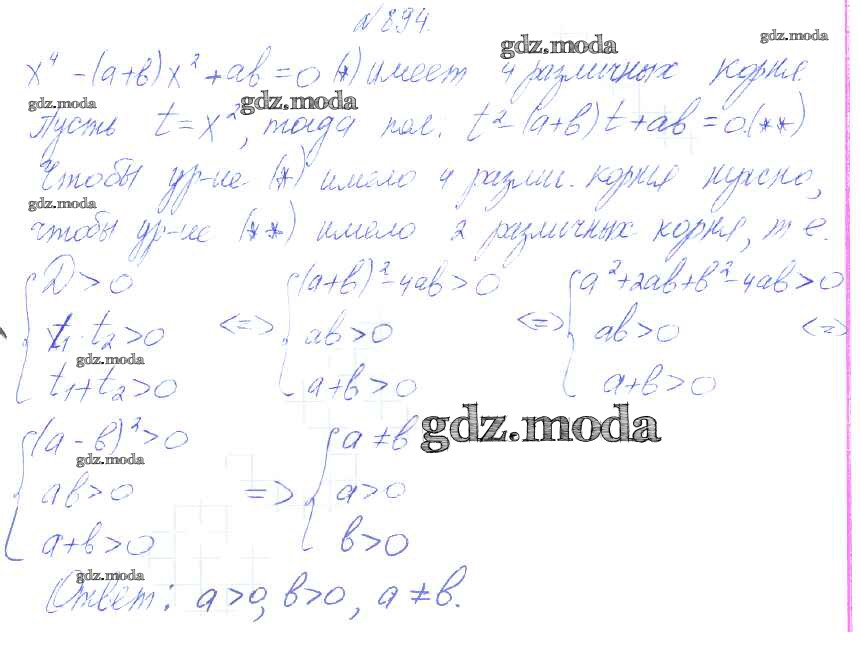 №894.
gdz.moda
gdz.moda
x⁴ – (a+b)x² + ab = 0 (*) имеет 4 различных корня.
gdz.moda
gdz.moda
Пусть t = x², тогда пол. t² – (a+b)t + ab = 0.(**)
Чтобы ур-ие (*) имело 4 разли. корня нужно,
gdz.moda
чтобы ур-ие (**) имело 2 различных корня, т е.
{ D > 0 { (a+b)² – 4ab > 0 { a² + 2ab + b² – 4ab > 0
t₁ · t₂ > 0 <=> ab > 0 <=> ab > 0 <=>
gdz.moda
t₁ + t₂ > 0 a + b > 0 a + b > 0
gdz.moda
{ (a – b)² > 0 { a ≠ b
gdz.moda
ab > 0 => a > 0
a + b > 0 b > 0
gdz.moda
Ответ: a > 0, b > 0, a ≠ b.